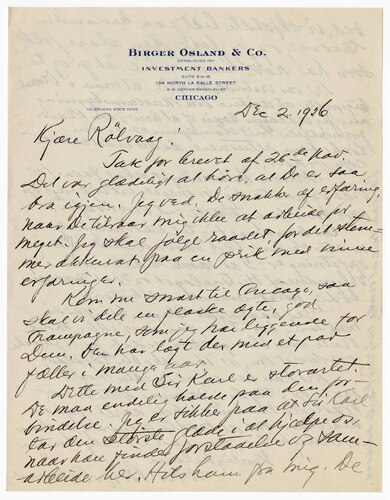 BIRGER OSLAND & CO.
ESTABLISHED 1911
INVESTMENT BANKERS
SUITE 814-16
134 NORTH LA SALLE STREET
S.W. CORNER RANDOLPH ST.
CHICAGO
TELEPHONE STATE
Dec 2. 1926
Kjære Rölvaag!
Tak for brevet af 26de Nov.
Det var glædeligt at höre, at De er saa
bra igjen. Jeg ved, De snakker af erfaring,
naar De tilraar mig ikke at arbeide for
meget. Jeg skal fölge raadet, for det stem-
mer akkurat paa en prik med mine
erfaringer.
Kom nu snart til Chicago, saa
skal vi dele en flaske ægte, god
Champagne som jeg har liggende for
Dem. Den har lagt der med et par
fæller i mange aar.
Dette med Sir Karl er storartet.
De maa endelig holde paa den for-
bindelse. Jeg er sikker paa at Sir Carl
tar den største glæde i at hjælpe os
naar han finder forstaaelse og sam-
arbeide her. Hils ham fra mig. De